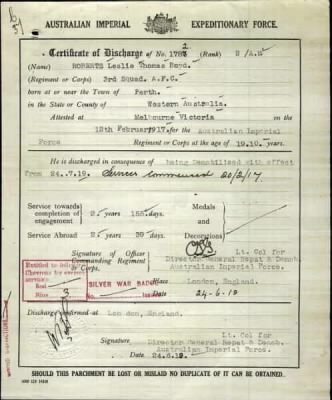 AUSTRALIAN IMPERIAL EXPEDITIONARY FORCE.
Certificate of Discharge of No. 1782 (Rank) 2/A.M.
(Name) ROBERTS Leslie Thomas Boyd.
(Regiment or Corps) 3rd Squad. A.F.C.
born at or near the Town of Perth.
in the State or County of Western Australia.
Attested at Melbourne Victoria on the
12th February 1917. for the Australian Imperial
Force Regiment or Corps at the age of 19.10.
He is discharged in consequence of being Demobilised with effect
from 24.7.19. Services Commenced 20/2/17
Service towards completion of engagement 2 years 155 days.
Medals and Decorations
Service Abroad 2 years 39 days.
Signature of Officer Commanding Regiment or Corps.
Lt. Col for
Director General Repat & Demob.
Australian Imperial Force.
Entitled to
Chevrons
service
Red
Blue
SILVER WAR BADGE
No. Issued
Place London, England.
Date 24-6-19
Discharge confirmed at London, England.
Signature
Lt. Col for
Director General Repat & Demob.
Australian Imperial Force.
Date 24.6.19.
SHOULD THIS PARCHMENT BE LOST OR MISLAID NO DUPLICATE OF IT CAN BE OBTAINED.